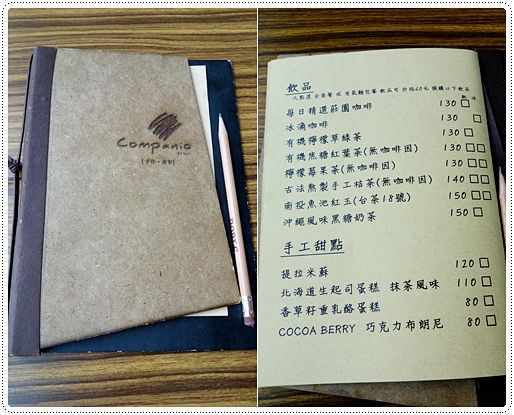 Companio
[手作•烘焙]
飲品
凡點選 全套餐 或 有氣麵包餐 飲品可 折抵60元 請購以下飲品
熱 冰
每日精選莊園咖啡 130 □
冰滴咖啡 130 □
有機檸檬草綠茶 130 □□
有機焦糖紅葉茶(無咖啡因) 130 □□
檸檬莓果茶(無咖啡因) 130 □□
古法熬製手工桔茶(無咖啡因) 140 □□
南投魚池紅玉(台茶18號) 150 □□
沖繩風味黑糖奶茶 150 □
手工甜點
提拉米蘇 120 □
北海道生起司蛋糕 抹茶風味 110 □
香草籽重乳酪蛋糕 80 □
COCOA BERRY 巧克力布朗尼 80 □